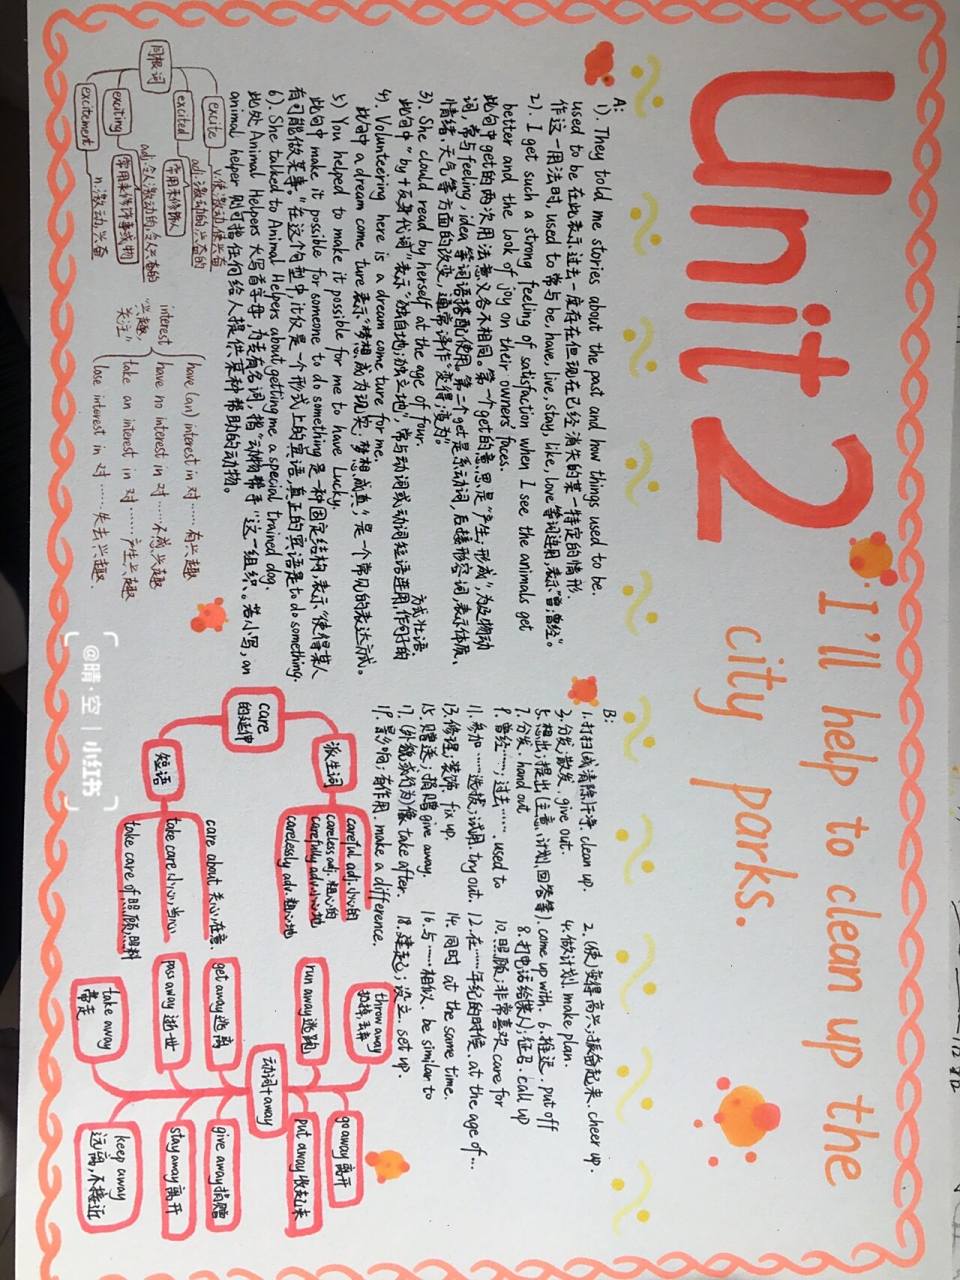 Unit 2
I'll help to clean up the
city parks.
A:
1). They told me stories about the past and how things used to be.
used to be 在此表示过去一度存在但现在已经消失的某一特定的情形.
作这一用法时, used to 常与be, have, live, stay, like, love等词连用, 表示"曾;曾经"。
2). I get such a strong feeling of satisfaction when I see the animals get
better and the look of joy on their owners' faces.
此句中get的两次用法意义各不相同。第一个get的意思是"产生;形成", 为及物动
词, 常与feeling, idea等词语搭配使用。第二个get是系动词, 后接形容词, 表示体质、
情绪、天气等方面的改变, 通常译作"变得;变为"。
3). She clould read by herself at the age of four.
此句中"by+反身代词"表示"独自地;独立地", 常与动词或动词短语连用, 作句子的
方式状语.
4). Volunteering here is a dream come ture for me.
此句中a dream come ture 表示"梦想成为现实;梦想成真", 是一个常见的表达方式。
5) You helped to make it possible for me to have Lucky.
此句中make it possible for someone to do something 是一种固定结构, 表示"使得某人
有可能做某事。"在这个句型中, it仅是一个形式上的宾语, 真正的宾语是to do something.
6). She talked to Animal Helpers about getting me a special trained dog.
此处Animal Helpers 大写首字母, 为专有名词, 指"动物帮手"这一组织。若小写, an
animal helper 则可指任何给人提供某种帮助的动物。
同根词
excite
v.使激动;使兴奋
excited
adj.激动的;兴奋的
常用来修饰人
exciting
adj.令人激动的;令人兴奋的
常用来修饰事或物
excitement
n.激动;兴奋
interest
"兴趣,
关注"
have (an) interest in 对……有兴趣
have no interest in 对……不感兴趣
take an interest in 对……产生兴趣
lose interest in 对……失去兴趣.
B:
1.打扫或清除干净. clean up.
2.(使)变得高兴;振奋起来. cheer up.
3.分发;散发. give out.
4.做计划 make plan.
5.想出;提出(主意、计划、回答等). come up with.
6.推迟. put off
7.分发. hand out
8.打电话给(某人);征召. call up
9.曾经……;过去……. used to
10.照顾;非常喜欢 care for
11.参加……选拔;试用. try out.
12.在……年纪的时候. at the age of...
13.修理;装饰. fix up.
14.同时 at the same time.
15.赠送;捐赠 give away.
16.与……相似. be similar to
17.(外貌或行为)像 take after.
18.建起;设立. set up.
19.影响;有作用. make a difference.
care
的延伸
派生词
careful adj.小心的
careless adj.粗心的
carefully adv.小心地
carelessly adv.粗心地
短语
care about 关心;在意
take care 小心;当心
take care of 照顾,照料
动词+away
throw away
扔掉;丢弃
run away 逃跑
get away 逃离
pass away 逝世
take away
带走
go away 离开
put away 收起来
give away 捐赠
stay away 离开
keep away
远离,不接近
@晴·空|小红书